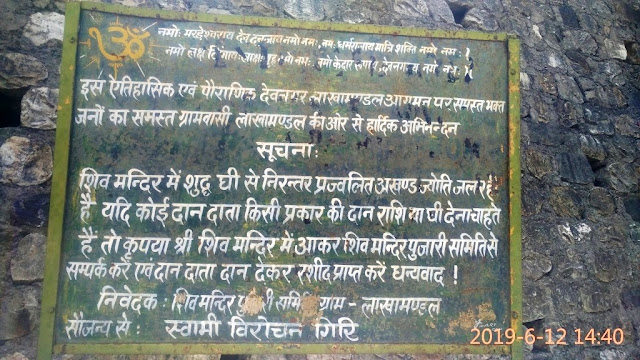 ॐ
नमोः
नमो नमः
इस ऐतिहासिक एवं पौराणिक देवनगर लाखामण्डल आगमन पर समस्त भक्त
जनों का समस्त ग्रामवासी लाखामण्डल की ओर से हार्दिक अभिनन्दन
सूचनाः
शिव मन्दिर में शुद्ध घी से निरन्तर प्रज्वलित अखण्ड ज्योति जल रहे
हैं यदि कोई दान दाता किसी प्रकार की दान राशि या घी देना चाहते
है तो कृपया श्री शिव मन्दिर में आकर शिव मन्दिर पुजारी समिति से
सम्पर्क करें एवं दान दाता दान देकर रशीद प्राप्त करें धन्यवाद !
निवेदक : शिव मन्दिर पुजारी समिति ग्राम - लाखामण्डल
सौजन्य से : स्वामी विरोचन गिरि
2019-6-12 14:40